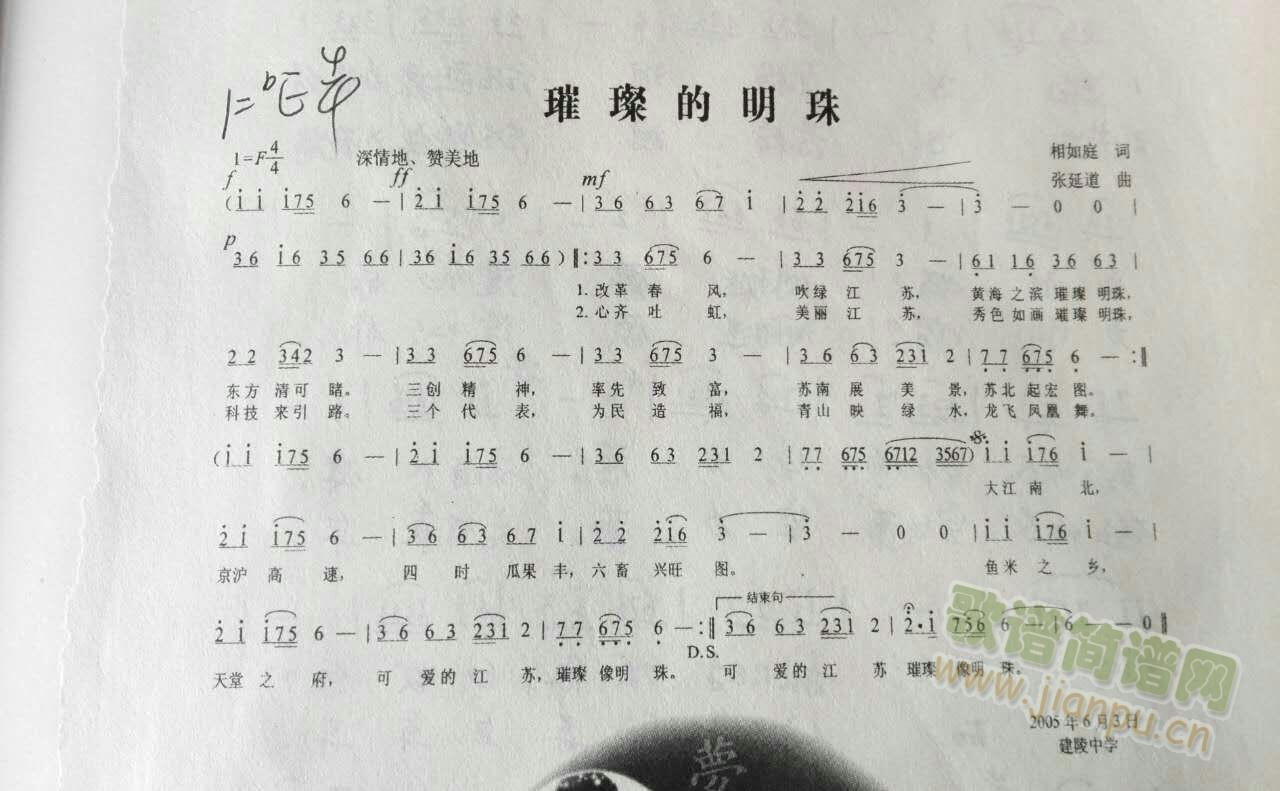 1=ᵇE 4/4
璀璨的明珠
1=F 4/4 深情地、赞美地
相如庭 词
张延道 曲
f ff mf
(i̇ i̇ i̇75 6 — | 2̇ i̇ i̇75 6 — | 36 63 67 i̇ | 2̇ 2̇ 2̇i̇6 3̇ — | 3̇ — 0 0 |
p
36 i̇6 35 66 | 36 i̇6 35 66 ) ‖: 3 3 675 6 — | 3 3 675 3 — | 61 16 36 63 |
1. 改革 春 风， 吹绿 江 苏， 黄海 之滨 璀璨 明珠，
2. 心齐 吐 虹， 美丽 江 苏， 秀色 如画 璀璨 明珠，
2 2 342 3 — | 3 3 675 6 — | 3 3 675 3 — | 3 6 6 3 231 2 | 7̣ 7̣ 6̣7̣5̣ 6̣ — :‖
东方 清可 睹。 三创 精 神， 率先 致 富， 苏南 展 美 景，苏北 起宏 图。
科技 来引 路。 三个 代 表， 为民 造 福， 青山 映 绿 水，龙飞 凤凰 舞。
(i̇ i̇ i̇75 6 — | 2̇ i̇ i̇75 6 — | 36 63 231 2 | 7̣7̣ 6̣7̣5̣ 6̣7̣12 3567) i̇ i̇ i̇76 i̇ — |
大江 南 北，
2̇ i̇ i̇75 6 — | 36 63 67 i̇ | 2̇ 2̇ 2̇i̇6 3̇ — | 3̇ — 0 0 | i̇ i̇ i̇76 i̇ — |
京沪 高 速， 四 时 瓜果 丰，六畜 兴旺 图。 鱼米 之 乡，
结束句
2̇ i̇ i̇75 6 — | 36 63 231 2 | 7̣ 7̣ 6̣7̣5̣ 6̣ — :‖ 36 63 231 2 | 2̇·i̇ 756 6 — | 6 — — 0 ‖
D.S.
天堂 之 府， 可 爱的 江 苏，璀璨 像明 珠。 可 爱的 江 苏 璀璨 像明 珠。
歌谱简谱网
www.jianpu.cn
2005年6月3日
建陵中学
夢